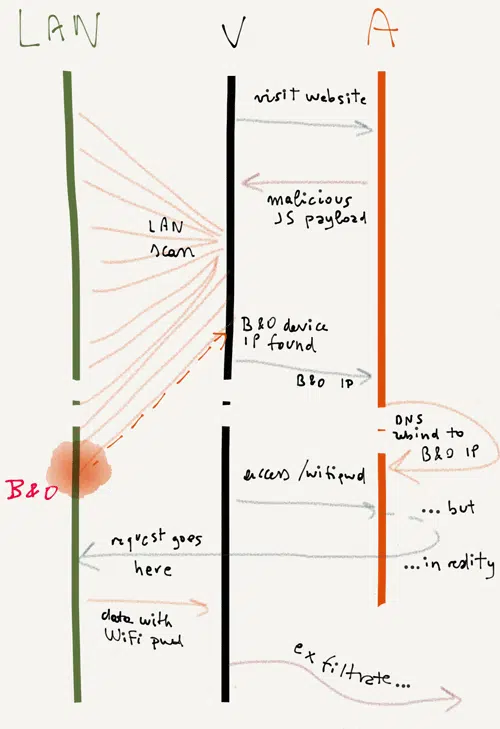 LAN
V
A
visit website
malicious
JS payload
LAN
scan
B&O device
IP found
B&O IP
DNS
rebind to
B&O IP
B&O
access /wifipwd
... but
request goes
here
...in reality
data with
WiFi pwd
exfiltrate...